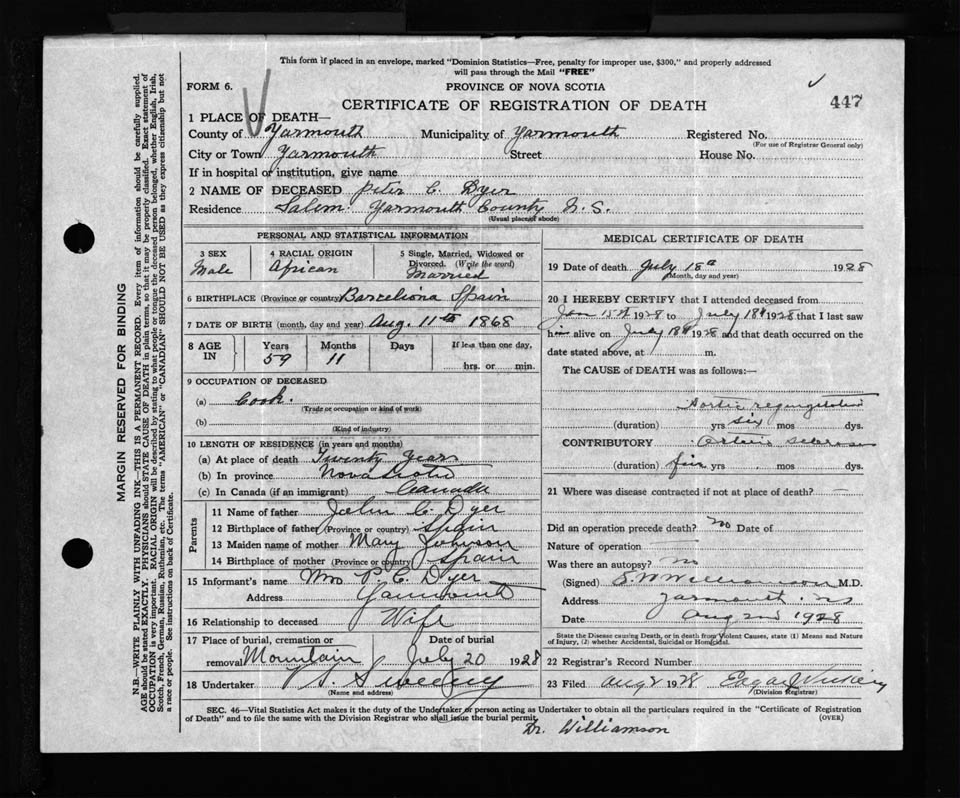 This form if placed in an envelope, marked "Dominion Statistics—Free, penalty for improper use, $300," and properly addressed
will pass through the Mail "FREE"
FORM 6.
PROVINCE OF NOVA SCOTIA
447
CERTIFICATE OF REGISTRATION OF DEATH
1 PLACE OF DEATH—
County of Yarmouth Municipality of Yarmouth Registered No.
(For use of Registrar General only)
City or Town Yarmouth Street House No.
If in hospital or institution, give name
2 NAME OF DECEASED Peter C. Dyer
Residence Salem Yarmouth County N. S.
(Usual place of abode)
PERSONAL AND STATISTICAL INFORMATION
3 SEX 4 RACIAL ORIGIN 5 Single, Married, Widowed or
Divorced. (Write the word)
Male African Married
6 BIRTHPLACE (Province or country) Barceliona Spain
7 DATE OF BIRTH (month, day and year) Aug. 11th 1868
8 AGE IN Years Months Days If less than one day,
59 11 hrs. or min.
9 OCCUPATION OF DECEASED
(a) Cook.
(Trade or occupation or kind of work)
(b)
(Kind of industry)
10 LENGTH OF RESIDENCE (in years and months)
(a) At place of death Twenty Years
(b) In province Nova Scotia
(c) In Canada (if an immigrant) Canada
Parents
11 Name of father John C. Dyer
12 Birthplace of father (Province or country) Spain
13 Maiden name of mother Mary Johnson
14 Birthplace of mother (Province or country) Spain
15 Informant's name Mrs. P. C. Dyer
Address Yarmouth
16 Relationship to deceased Wife
17 Place of burial, cremation or Date of burial
removal Mountain July 20 1928
18 Undertaker V. S. Sweeny
(Name and address)
MEDICAL CERTIFICATE OF DEATH
19 Date of death July 18th 1928
(Month, day and year)
20 I HEREBY CERTIFY that I attended deceased from
Jan 15th 1928 to July 18th 1928 that I last saw
him alive on July 18th 1928 and that death occurred on the
date stated above, at m.
The CAUSE of DEATH was as follows:—
Aortic regurgitation
(duration) yrs six mos dys.
CONTRIBUTORY Arterio sclerosis
(duration) five yrs mos dys.
21 Where was disease contracted if not at place of death?
Did an operation precede death? no Date of
Nature of operation
Was there an autopsy? no
(Signed) S. W. Williamson M.D.
Address Yarmouth. NS
Date Aug 2nd 1928
State the Disease causing Death, or in death from Violent Causes, state (1) Means and Nature
of Injury, (2) whether Accidental, Suicidal or Homicidal.
22 Registrar's Record Number
23 Filed Aug 2 1928 Edgar
(Division Registrar)
SEC. 46—Vital Statistics Act makes it the duty of the Undertaker or person acting as Undertaker to obtain all the particulars required in the "Certificate of Registration
of Death" and to file the same with the Division Registrar who shall issue the burial permit.
(OVER)
Dr. Williamson
MARGIN RESERVED FOR BINDING
N.B.—WRITE PLAINLY WITH UNFADING INK—THIS IS A PERMANENT RECORD. Every item of information should be carefully supplied.
AGE should be stated EXACTLY. PHYSICIANS should STATE CAUSE OF DEATH in plain terms, so that it may be properly classified. Exact statement of
OCCUPATION is very important. RACIAL ORIGIN will be described by stating to what people or tongue the deceased person belonged, whether English, Irish,
Scotch, French, German, Russian, Ruthenian, etc. The terms "AMERICAN" or "CANADIAN" SHOULD NOT BE USED as they express citizenship but not
a race or people. See instructions on back of Certificate.